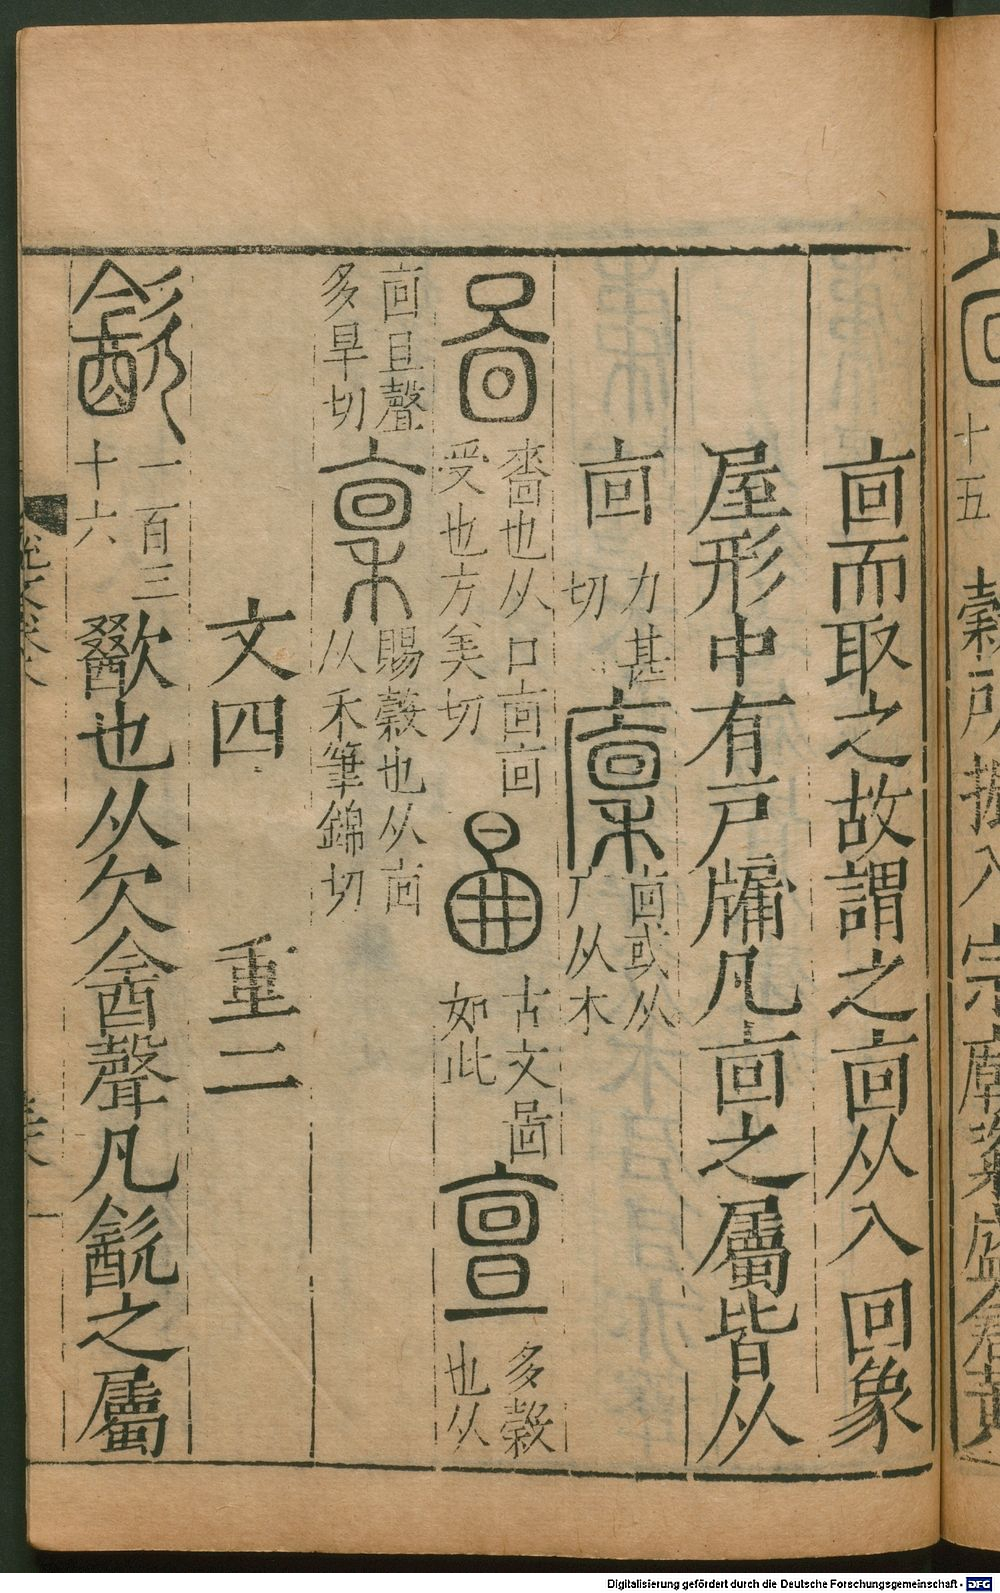 十五 穀所振入宗廟粢盛倉黃
㐭而取之故謂之㐭从入回象
屋形中有戸牖凡㐭之屬皆从
㐭 力甚切 廩 㐭或从广从木
啚 嗇也从口㐭㐭受也方美切 古文啚如此 亶 多穀也从
㐭且聲多旱切 稟 賜穀也从㐭从禾筆錦切
文四 重二
㱃 一百三十六 歠也从欠酓聲凡㱃之屬
Digitalisierung gefördert durch die Deutsche Forschungsgemeinschaft - DFG